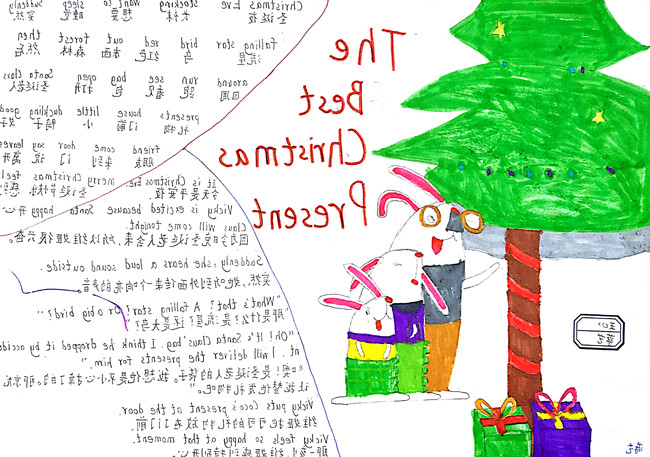 Christmas Eve stocking want to sleeping Suddenly
圣诞夜 长袜 想要 睡觉 突然
falling star bird red out forest then
流星 鸟 红色 东西 森林 然后
around run see bag open Santa Claus
周围 跑 看见 包 打开 圣诞老人
presents house little duckling good
礼物 门前 小 鸭子 好
friend come door my leaves
朋友 来到 门 说 离开
merry Christmas feel
圣诞节快乐
The
Best
Christmas
Present
It is Christmas Eve.
今天是平安夜。
Vicky is excited because Santa
Claus will come tonight.
因为今晚圣诞老人会来，所以维姬很兴奋。
Suddenly, she hears a loud sound outside.
突然，她听到外面传来一个响亮的声音。
"What's that? A falling star? Or a big bird?"
"那是什么？是流星？还是大鸟？"
"Oh! It's Santa Claus' bag. I think he dropped it by accide
nt. I will deliver the presents for him."
"噢！是圣诞老人的袋子。我想他是不小心掉了的。
让我替他发礼物吧。"
Vicky puts Coco's present at the door.
维姬把可可的礼物放在门前
Vicky feels so happy at that moment.
那一刻，维姬感到特别开心。